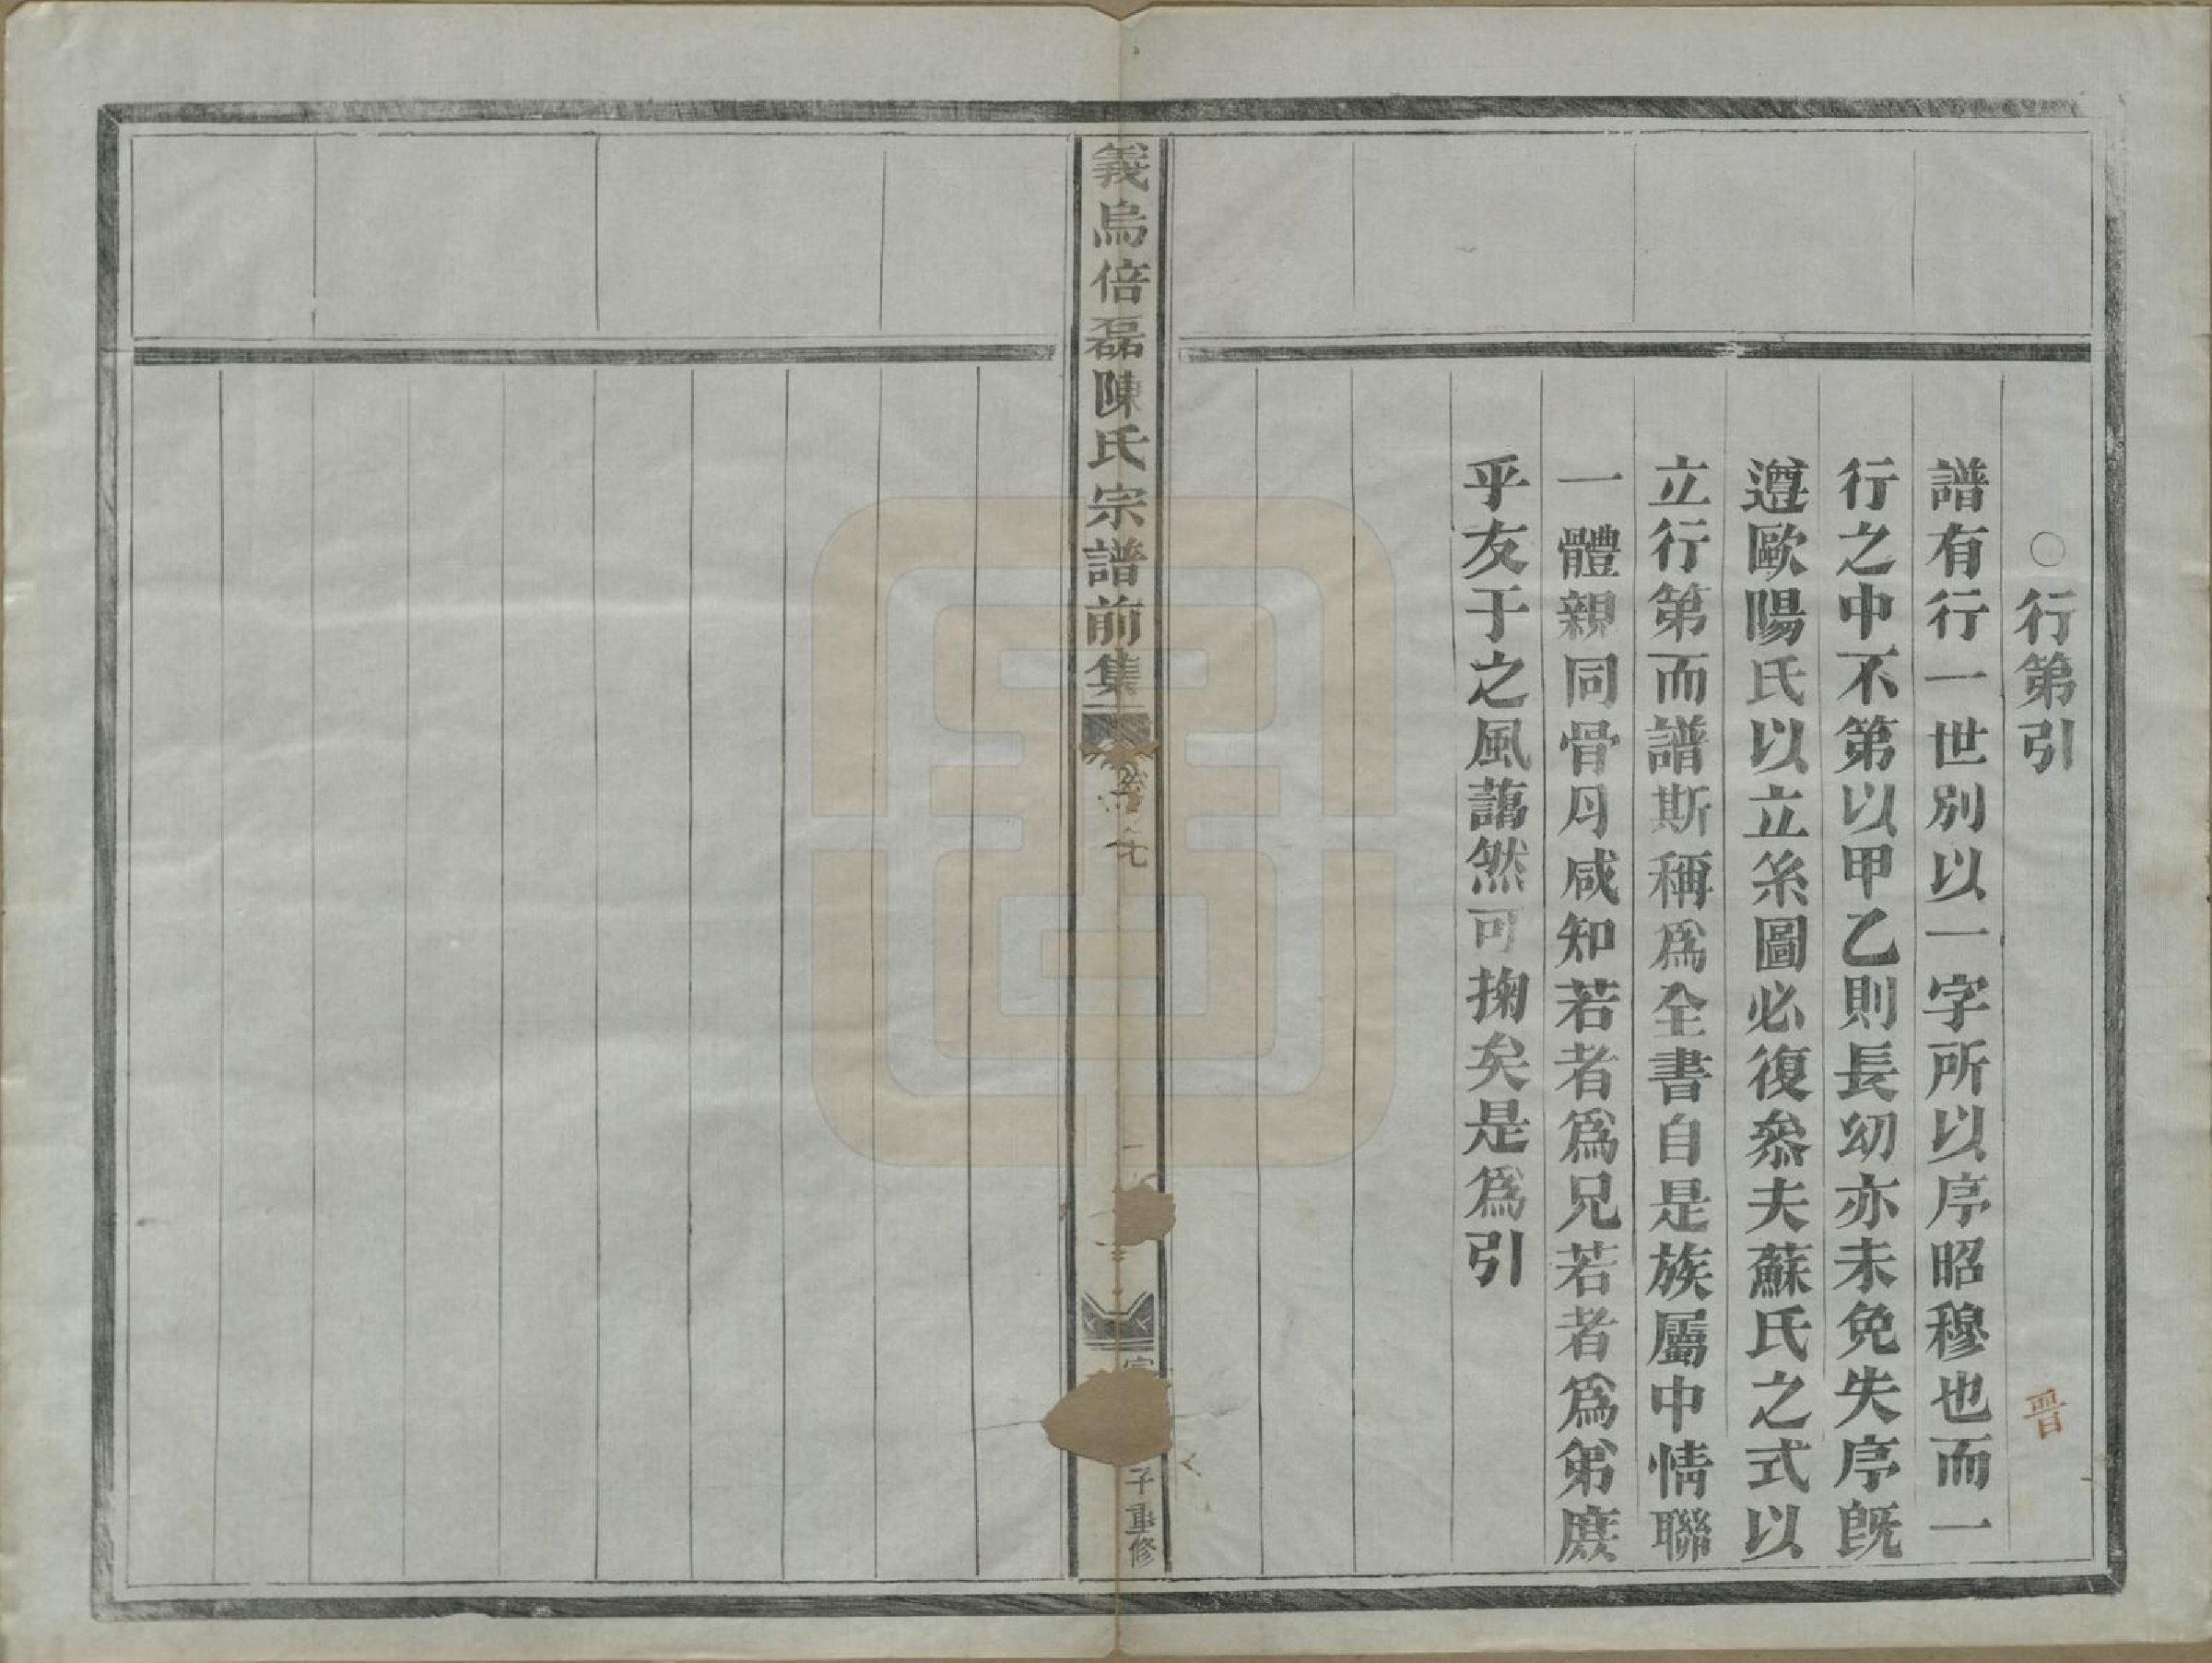 ○行第引
晋
譜有行一世別以一字所以序昭穆也而一
行之中不第以甲乙則長幼亦未免失序旣
遵歐陽氏以立系圖必復叅夫蘇氏之式以
立行第而譜斯稱爲全書自是族屬中情聯
一體親同骨月咸知若者爲兄若者爲第庶
乎友于之風藹然可掬矣是爲引
義烏倍磊陳氏宗譜前集
子重修